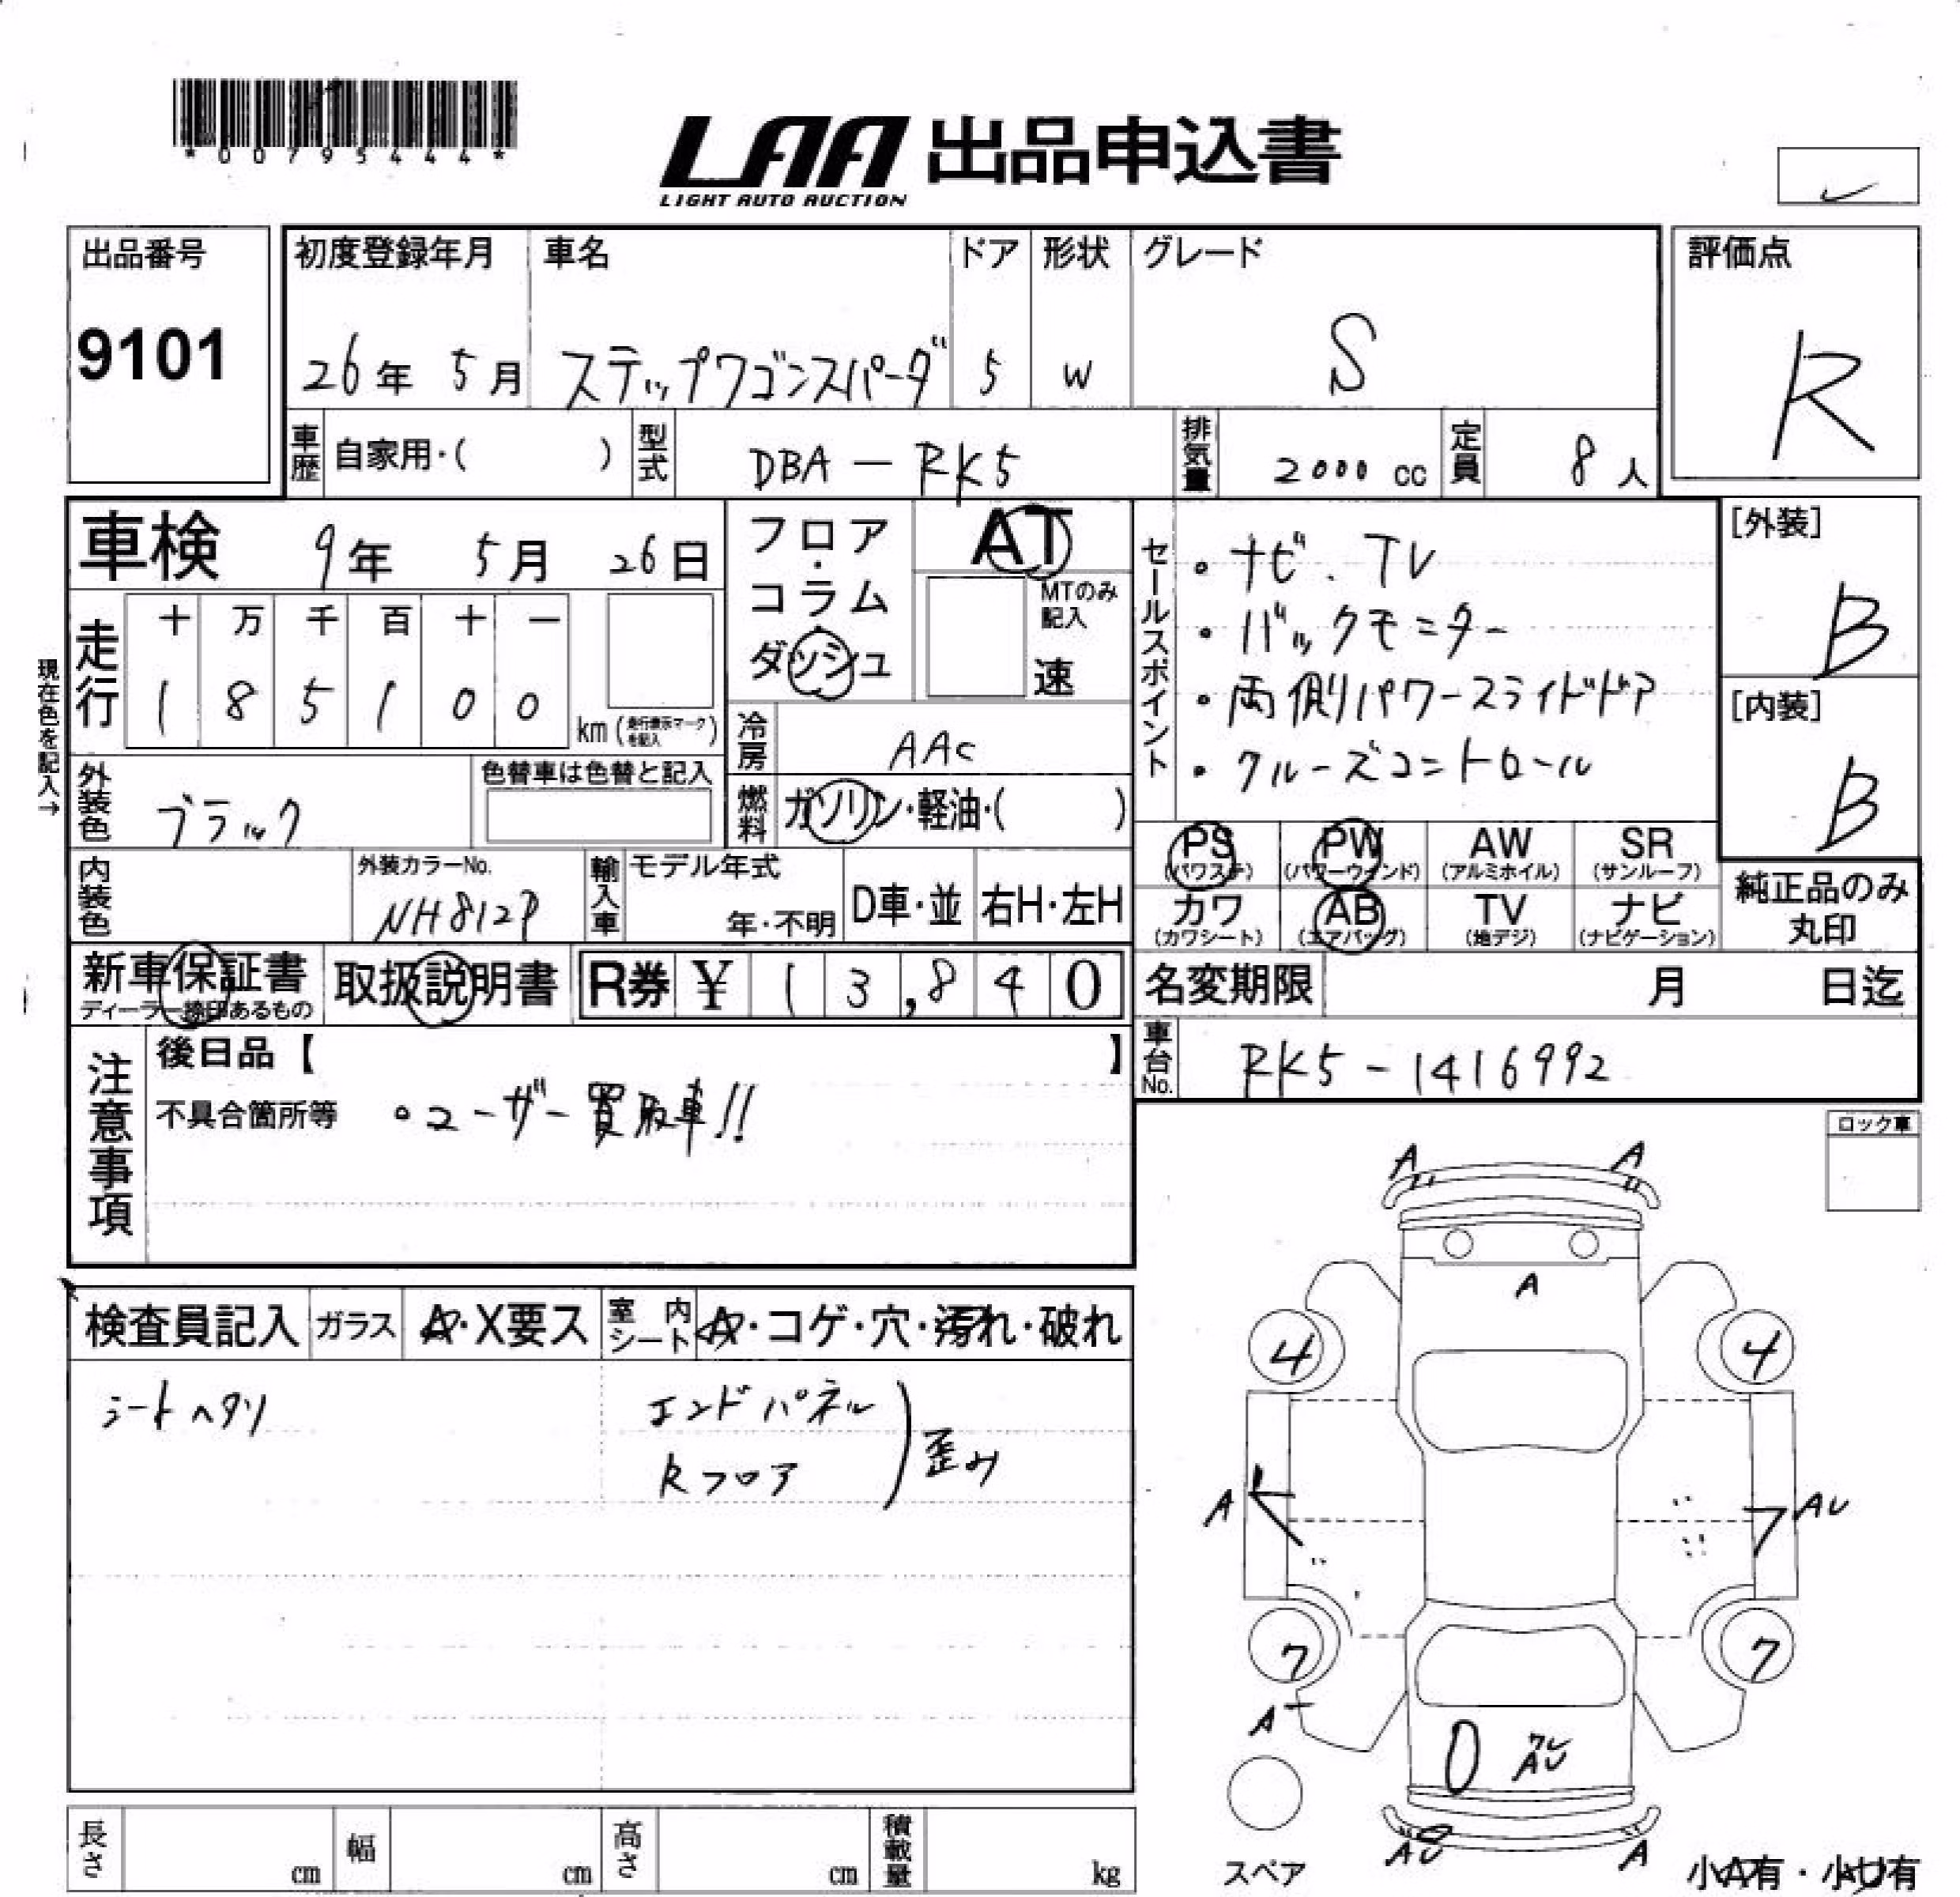 *00795444*
LAA 出品申込書
LIGHT AUTO AUCTION
出品番号
9101
初度登録年月
26年 5月
車名
ステップワゴンスパーダ
ドア
5
形状
W
グレード
S
評価点
R
車歴 自家用・( )
型式 DBA－RK5
排気量 2000 cc
定員 8人
車検 9年 5月 26日
フロア・コラム
ダッシュ
AT
MTのみ記入
速
現在色を記入→
走行
十 万 千 百 十 一
1 8 5 1 0 0
km (走行表示マークを記入)
冷房 AAC
燃料 ガソリン・軽油・( )
セールスポイント
・ナビ、TV
・バックモニター
・両側パワースライドドア
・クルーズコントロール
[外装]
B
[内装]
B
外装色 ブラック
色替車は色替と記入
内装色
外装カラーNo.
NH812P
輸入車 モデル年式
年・不明
D車・並
右H・左H
PS (パワステ)
PW (パワーウインド)
AW (アルミホイル)
SR (サンルーフ)
カワ (カワシート)
AB (エアバッグ)
TV (地デジ)
ナビ (ナビゲーション)
純正品のみ丸印
新車保証書
ディーラー捺印あるもの
取扱説明書
R券 ¥ 13,840
名変期限 月 日迄
車台No. RK5-1416992
注意事項
後日品【 】
不具合箇所等 ・ユーザー買取車!!
ロック車
検査員記入
ガラス A・X要ス
室内シート A・コゲ・穴・汚れ・破れ
シートヘタリ
エンドパネル
Rフロア
歪み
A A
A
4 4
A AU
7 7
A
AU
AU A
スペア
小A有・小U有
長さ cm
幅 cm
高さ cm
積載量 kg